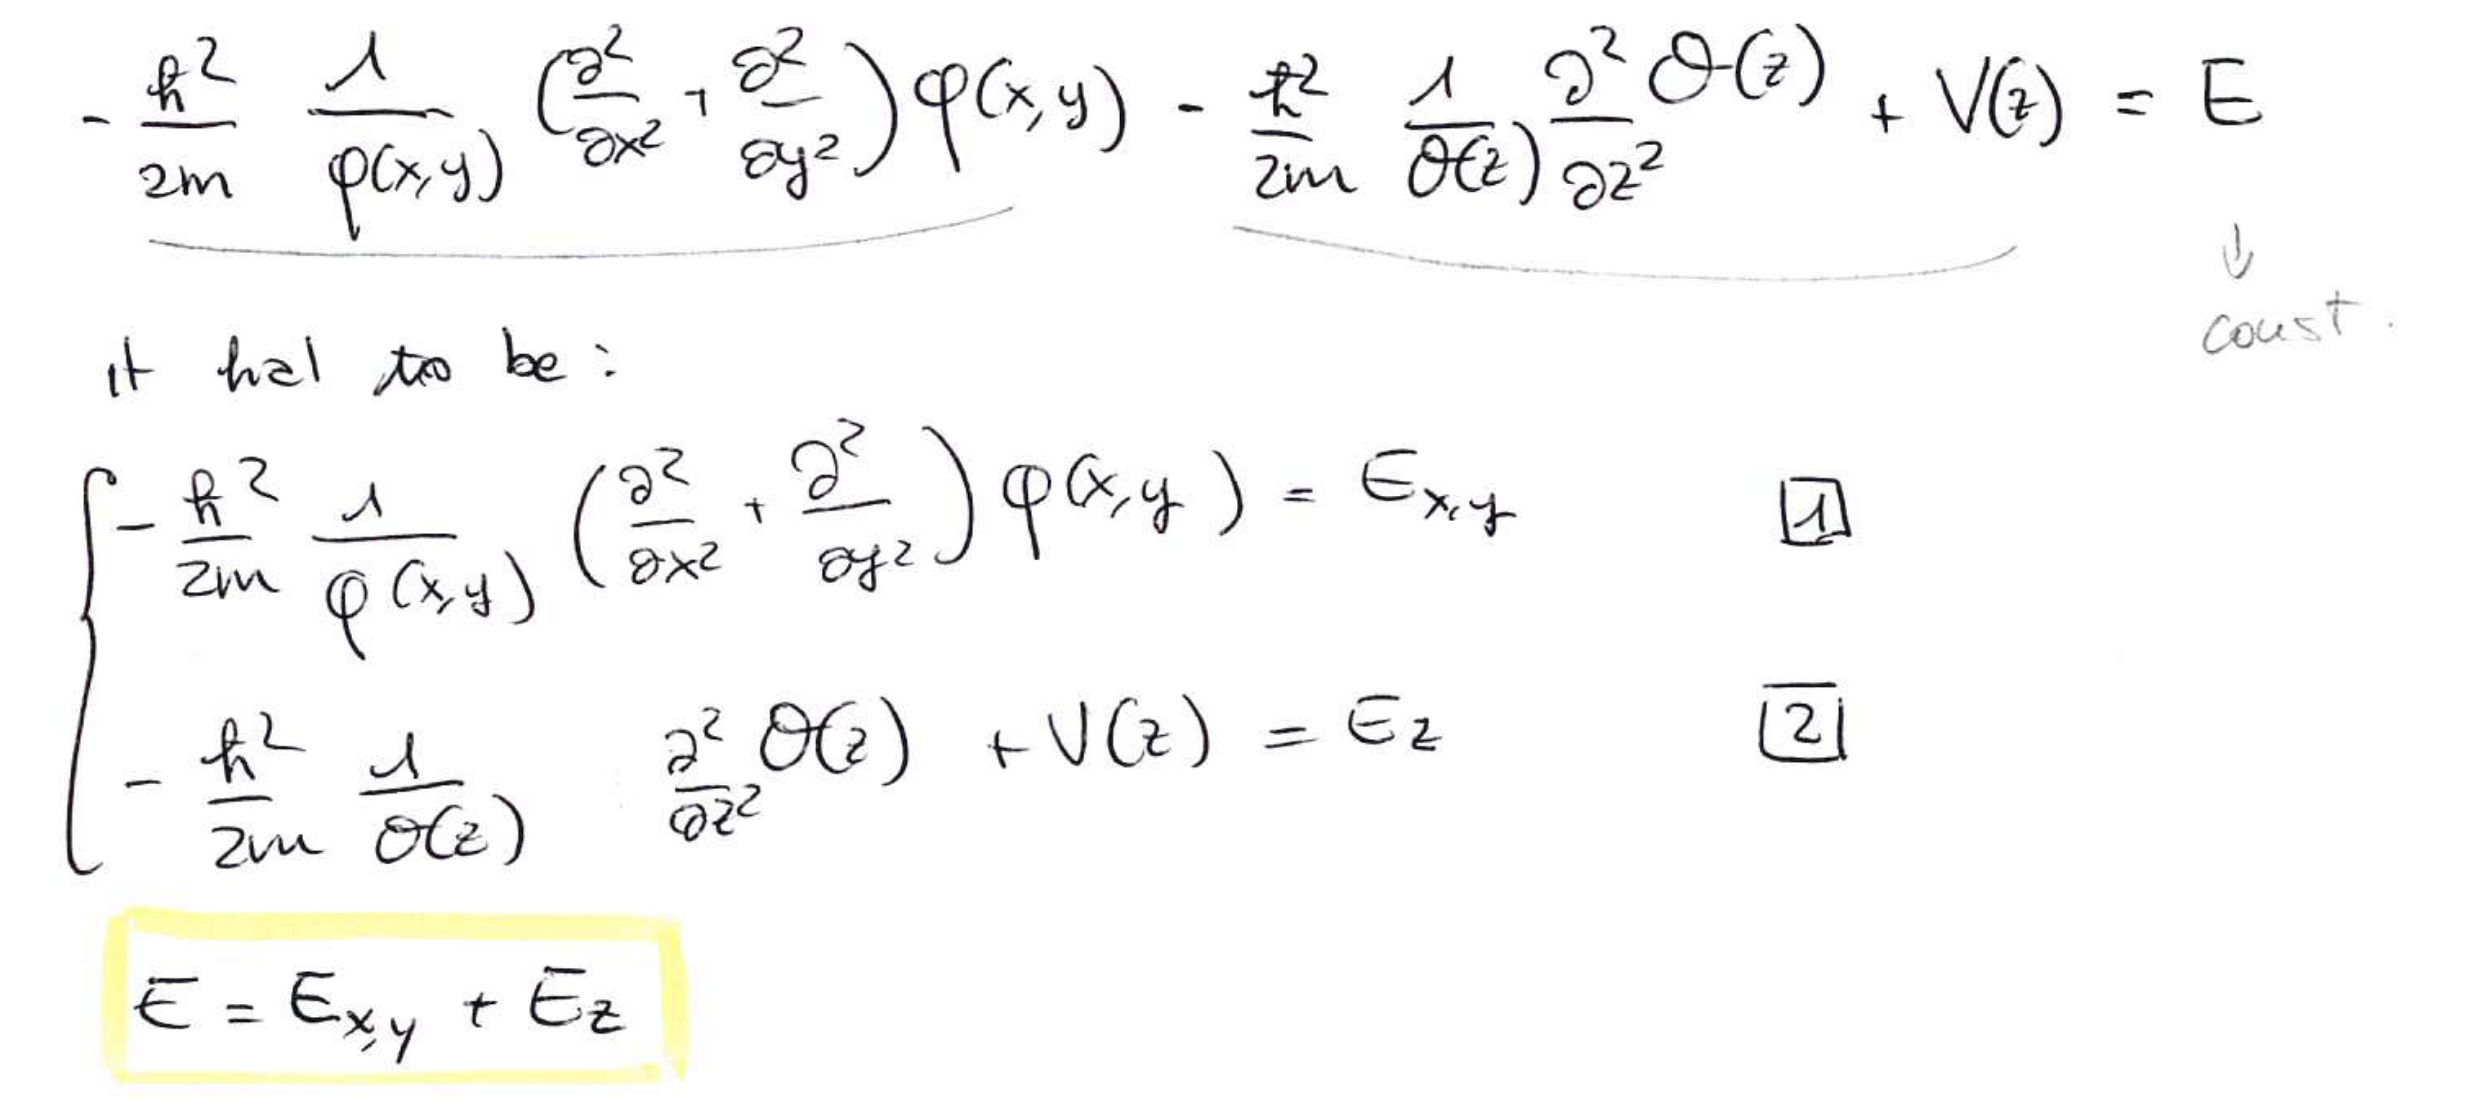 - ħ²/2m 1/φ(x,y) (∂²/∂x² + ∂²/∂y²) φ(x,y) - ħ²/2m 1/θ(z) ∂²/∂z² θ(z) + V(z) = E
↓
const.
it has to be:
{ - ħ²/2m 1/φ(x,y) (∂²/∂x² + ∂²/∂y²) φ(x,y) = Ex,y 1
- ħ²/2m 1/θ(z) ∂²/∂z² θ(z) + V(z) = Ez 2
E = Ex,y + Ez